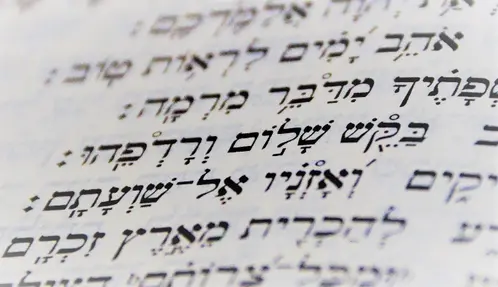 יְהוָה אֲלַמֶּדְכֶם׃
אֹהֵ֥ב יָ֝מִ֗ים לִרְא֥וֹת טֽוֹב׃
שְׂפָתֶ֗יךָ מִדַּבֵּ֥ר מִרְמָֽה׃
ב בַּקֵּ֖שׁ שָׁל֣וֹם וְרָדְפֵֽהוּ׃
יקִים וְ֝אָזְנָ֗יו אֶל־שַׁוְעָתָֽם׃
ע לְהַכְרִ֖ית מֵאֶ֣רֶץ זִכְרָֽם
וּמִכָּל־צָ֝רוֹתָ֗ם